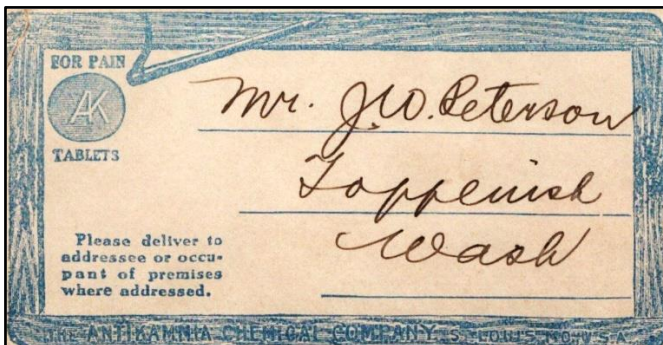 FOR PAIN
AK
TABLETS
Mr. J.W. Peterson
Toppenish
Wash
Please deliver to
addressee or occu-
pant of premises
where addressed.
THE ANTIKAMNIA CHEMICAL COMPANY, ST. LOUIS, MO. U.S.A.